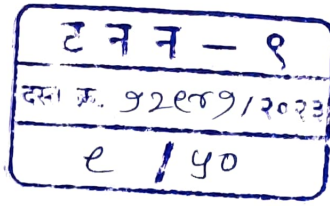 ट न न - ९
दस्त क्र. १२९४१/२०२३
९ / ५०